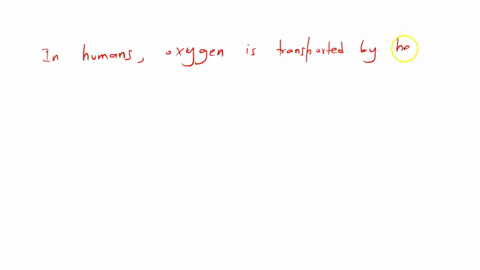 In humans, oxygen is transported by he